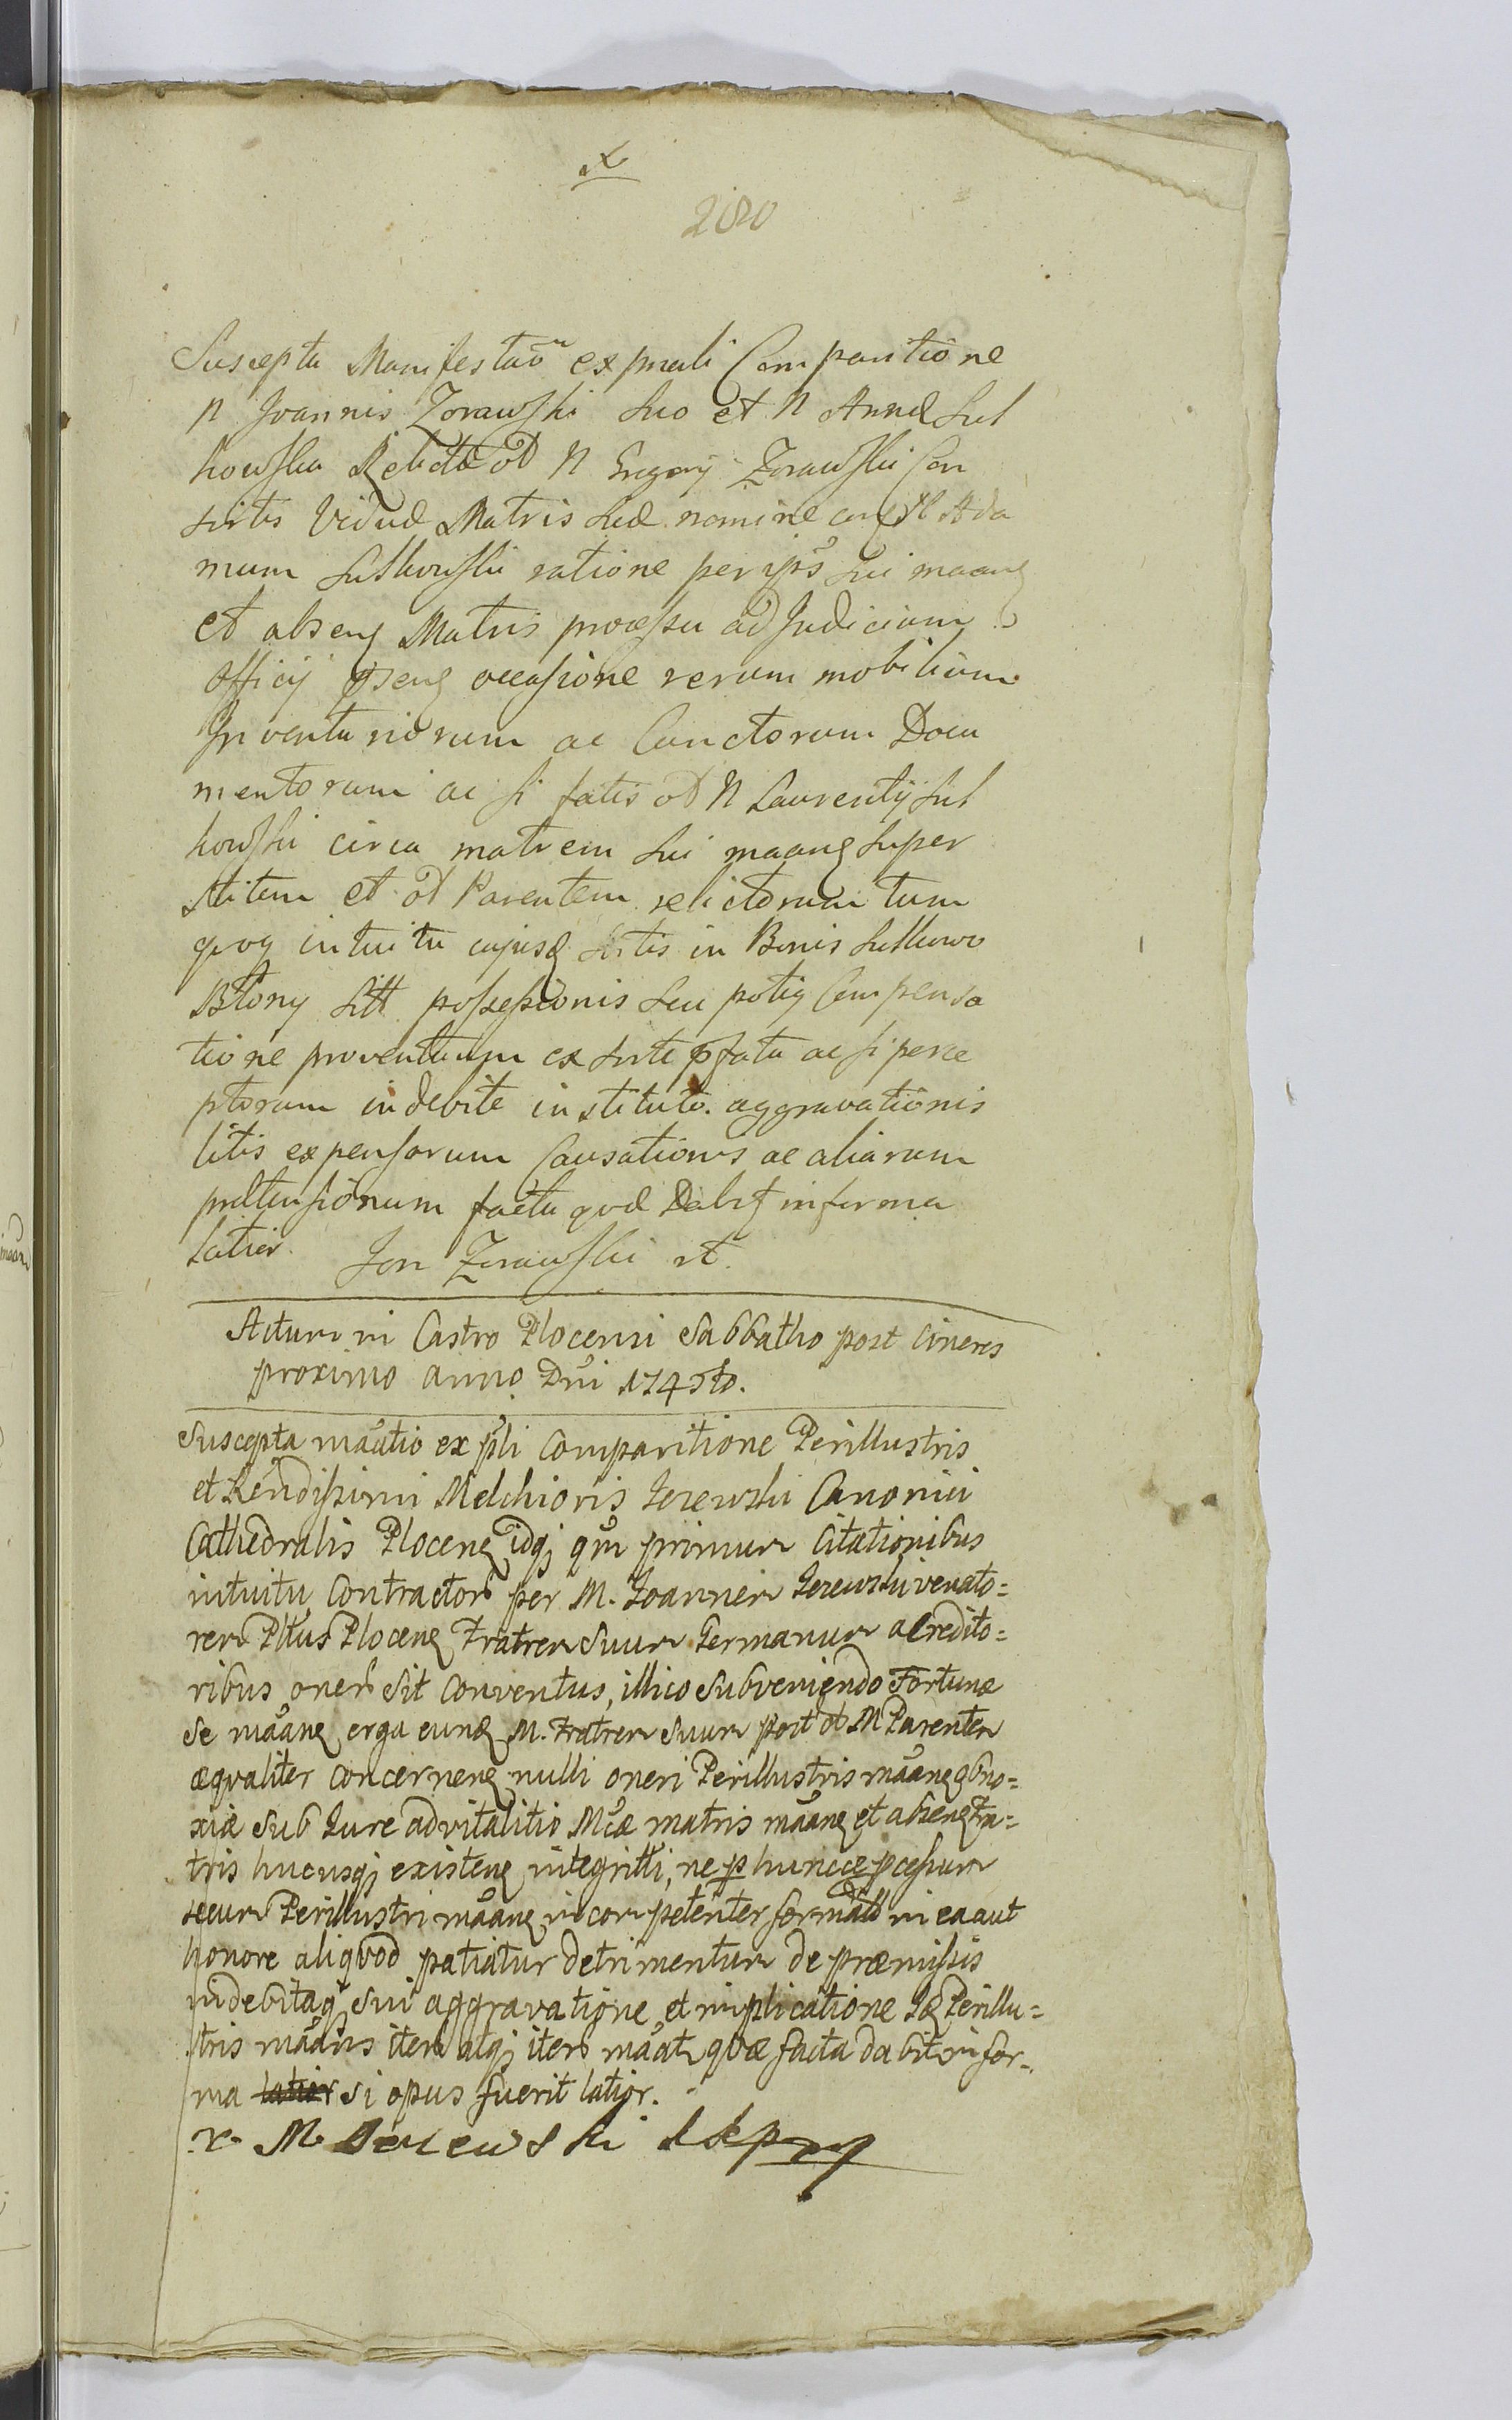 280
Suscepta Manifestaõn ex pnali Comparitione
N Joannis Zorawski suo et N Annæ Sut
kowska Relictæ ol N Gregorij Zorawski Con
sortis Viduæ Matris suæ nomine con N Ada
mum Sutkowski ratione per ips sui maang
et abseng Matris processu ad Judicium
Officij pseng occasione rerum mobilium
Inventariorum ac Cunctorum Docu
mentorum ac si fatis ol N Laurentij Sut
kowski circa matrem sui maang super
stitem et ol Parentem relictorum tum
qvoq intuitu cujusq sortis in Bonis Sutkowo
Błony sitt possessionis seu potiq Compensa
tione proventuum ex sorte pfata ac si perce
ptorum indebite instituto. aggravationis
litis expensorum Causationis ac aliarum
prætensionum facta qvæ Dabit in forma
latior. Jan Zorawski rt.
Actum in Castro Plocensi Sabbatho post Cineres
proximo anno Dni 174
Suscepta maatio ex pli Comparitione Perillustris
et Rendissimi Melchioris Jezewski Canonici
Cathedralis Ploceng idqj qm primum Citationibus
intuitu Contractor per M. Joannem Jezewski venato=
rem Pltus Ploceng Fratrem Suum Germanum a Credito=
ribus oner sit Conventus, illico Subveniendo Fortunæ
se maang erga eund M. Fratrem Suum post ol M Parentem
æqvaliter Concerneng nulli oneri Perillustris maang obno=
xiæ sub Jure advitalitio Mcæ matris maang et abseng Fra=
tris hucusqj existeng integritti, ne p huncce pcessum
secum Perillustri maang incompetenter format in ea aut
honore aliqvod patiatur detrimentum de præmissis
indebitaq sui aggravatione et implicatione Id Perillu=
stris maans item atqj item maatr qvæ facta dabit in for=
ma latior si opus fuerit latior.
x. M Jezewski